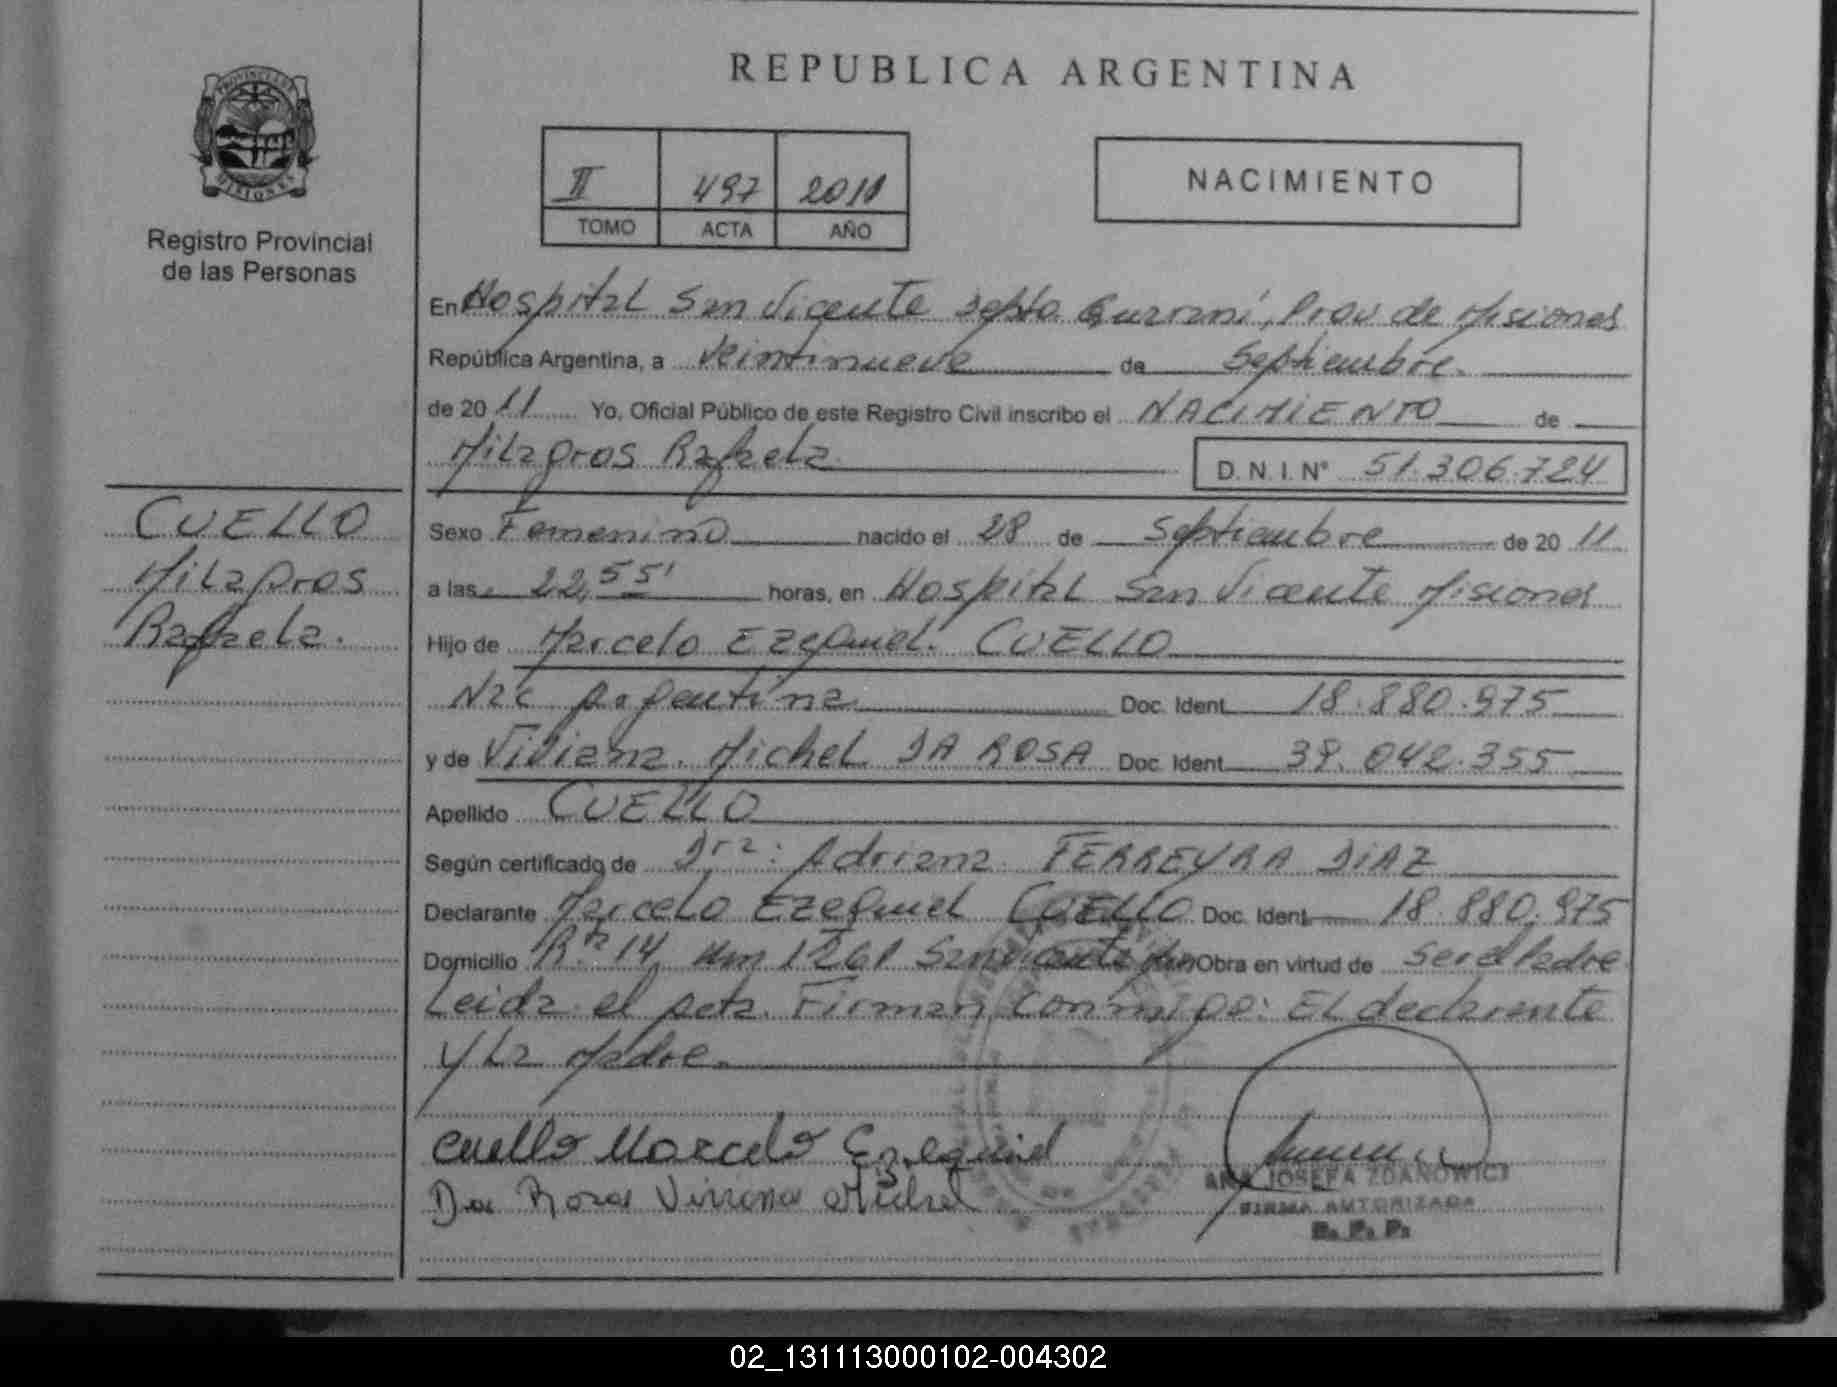 REPUBLICA ARGENTINA
PROVINCIA DE
MISIONES
Registro Provincial
de las Personas
II 497 2011
TOMO ACTA AÑO
NACIMIENTO
En Hospital San Vicente Depto Guaraní, Prov de Misiones
República Argentina, a Veintinueve de Septiembre.
de 2011 Yo, Oficial Público de este Registro Civil inscribo el NACIMIENTO de
Milagros Rafaela. D. N. I. N° 51.306.724
CUELLO
Milagros
Rafaela.
Sexo Femenino nacido el 28 de Septiembre de 2011
a las 22,55' horas, en Hospital San Vicente Misiones
Hijo de Marcelo Ezequiel. CUELLO
Nac Argentina Doc. Ident. 18.880.975
y de Viviana. Michel DA ROSA Doc. Ident. 39.042.355
Apellido CUELLO
Según certificado de Dra: Adriana FERREYRA DIAZ
Declarante Marcelo Ezequiel CUELLO Doc. Ident. 18.880.975
Domicilio Rta 14 Km 1261 San Vicente Obra en virtud de ser el Padre
Leida el acta. Firman conmigo: El declarante
y La Madre.
Cuello Marcelo Ezequiel
Da Rosa Viviana Michel
ANA JOSEFA ZDANOWICZ
FIRMA AUTORIZADA
R. P. P.
02_131113000102-004302